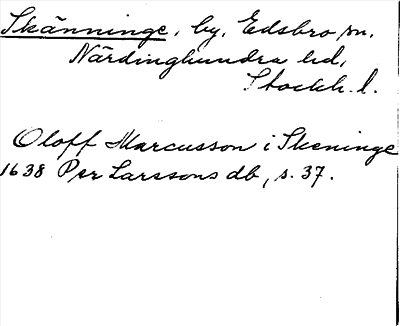 Skänninge, by, Edsbro sn,
Närdinghundra hd,
Stockh. l.
Oloff Marcusson i Skeninge
1638 Per Larssons db, s. 37.